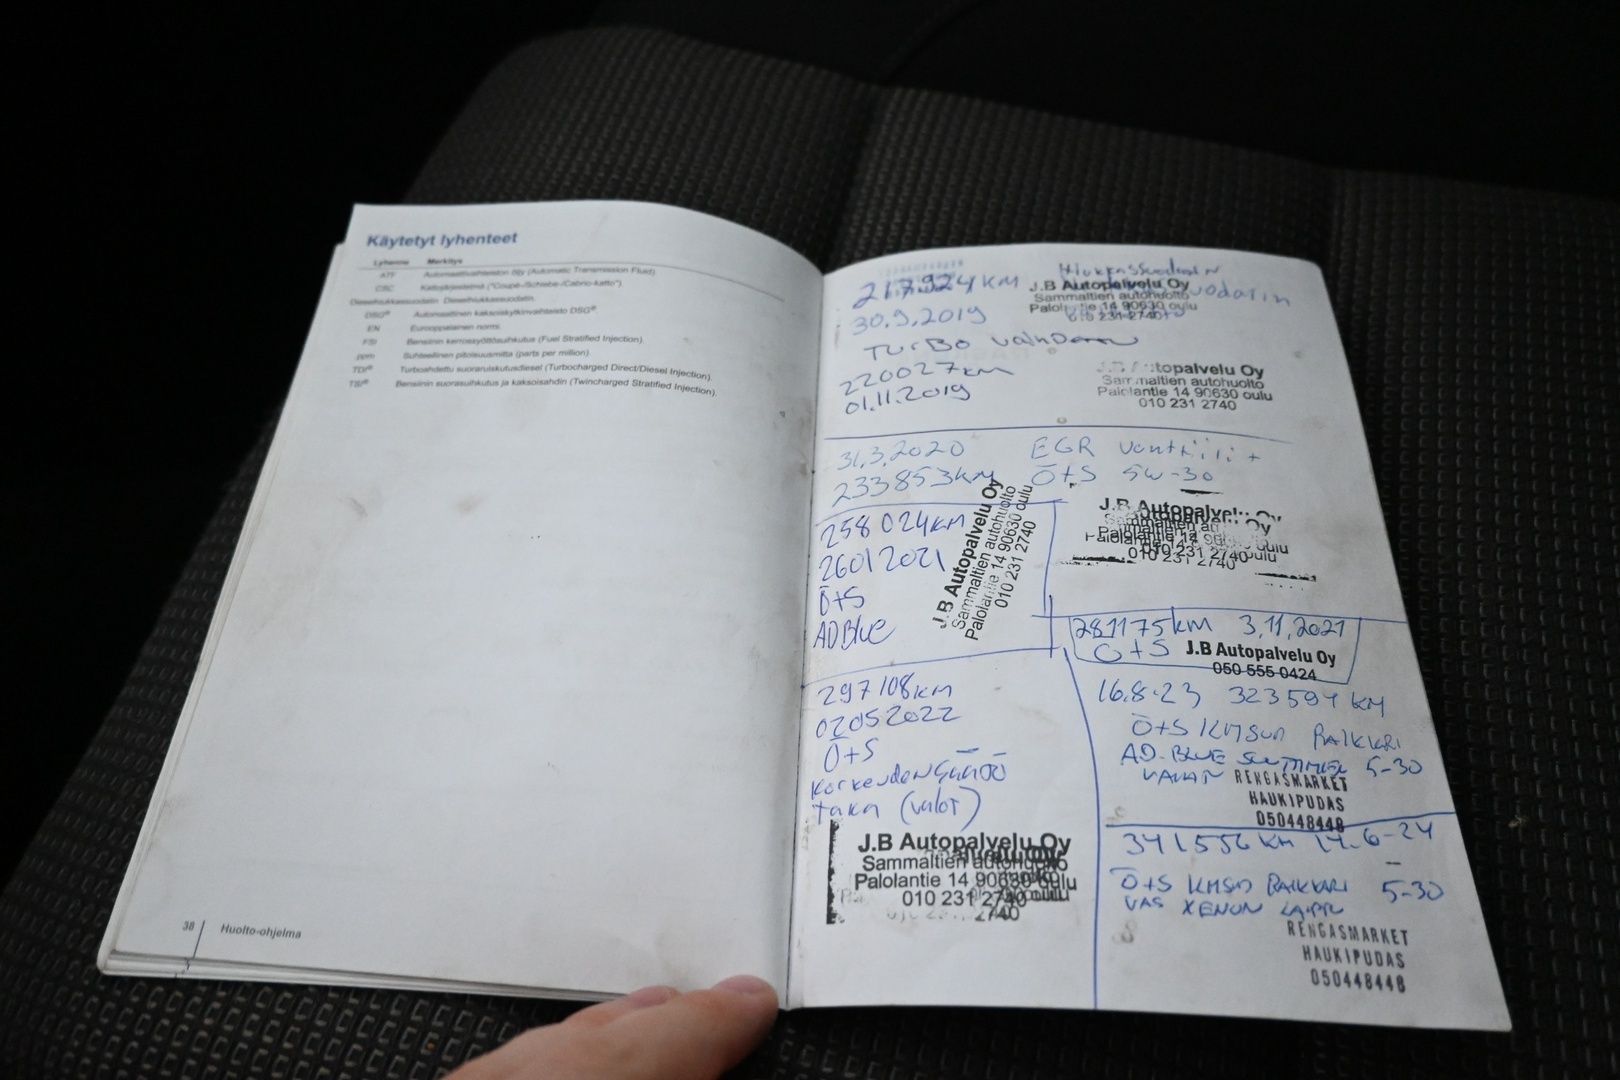 Käytetyt lyhenteet
Lyhenne Merkitys
ATF Automaattivaihteiston öljy (Automatic Transmission Fluid).
CSC Kattojärjestelmä ("Coupé-/Schiebe-/Cabrio-katto").
Dieselhiukkassuodatin Dieselhiukkassuodatin.
DSG® Automaattinen kaksoiskytkinvaihteisto DSG®.
EN Eurooppalainen normi.
FSI Bensiinin kerrossyöttösuihkutus (Fuel Stratified Injection).
ppm Suhteellinen pitoisuusmitta (parts per million).
TDI® Turboahdettu suoraruiskutusdiesel (Turbocharged Direct/Diesel Injection).
TSI® Bensiinin suorasuihkutus ja kaksoisahdin (Twincharged Stratified Injection).
38 Huolto-ohjelma
217924 KM
30.9.2019
Hiukkassuodatin
J.B Autopalvelu Oy
Sammaltien autohuolto
Palolantie 14 90630 oulu
010 231 2740
TURBO
220027 KM
01.11.2019
Autopalvelu Oy
Sammaltien autohuolto
Palolantie 14 90630 oulu
010 231 2740
31.3.2020 EGR venttiili +
233853 KM Ö+S 5W-30
J.B Autopalvelu Oy
Palolantie 14 90630 oulu
010 231 2740
258 024 KM
26012021
Ö+S
ADBlue
J.B Autopalvelu Oy
Sammaltien autohuolto
Palolantie 14 90630 oulu
010 231 2740
281175 km 3.11.2021
Ö+S J.B Autopalvelu Oy
050 555 0424
297108 KM
02052022
Ö+S
Korkeudensäätö
taka (valot)
J.B Autopalvelu Oy
Sammaltien autohuolto
Palolantie 14 90630 oulu
010 231 2740
16.8-23 323594 KM
Ö+S KMSUD RAIKKARI
AD.BLUE 5-30
RENGASMARKET
HAUKIPUDAS
050448448
341556 KM 17.6-24
Ö+S KMSUD RAIKKARI 5-30
VAS XENON LAPPU
RENGASMARKET
HAUKIPUDAS
050448448